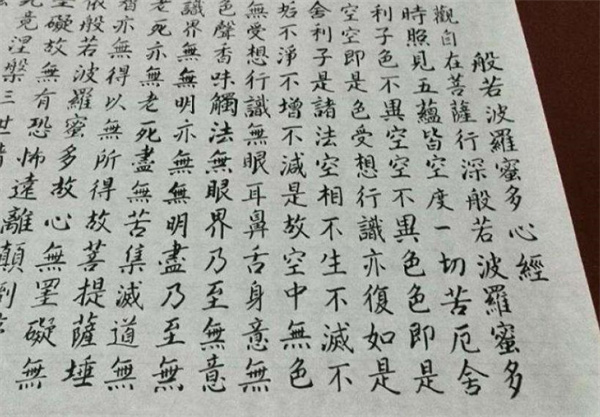 般若波羅蜜多心經
觀自在菩薩行深般若波羅蜜多
時照見五蘊皆空度一切苦厄舍
利子色不異空空不異色色即是
空空即是色受想行識亦復如是
舍利子是諸法空相不生不滅不
垢不淨不增不減是故空中無色
無受想行識無眼耳鼻舌身意無
色聲香味觸法無眼界乃至無意
識界無無明亦無無明盡乃至無
老死亦無老死盡無苦集滅道無
智亦無得以無所得故菩提薩埵
依般若波羅蜜多故心無罣礙無
罣礙故無有恐怖遠離顛倒
竟涅槃三世